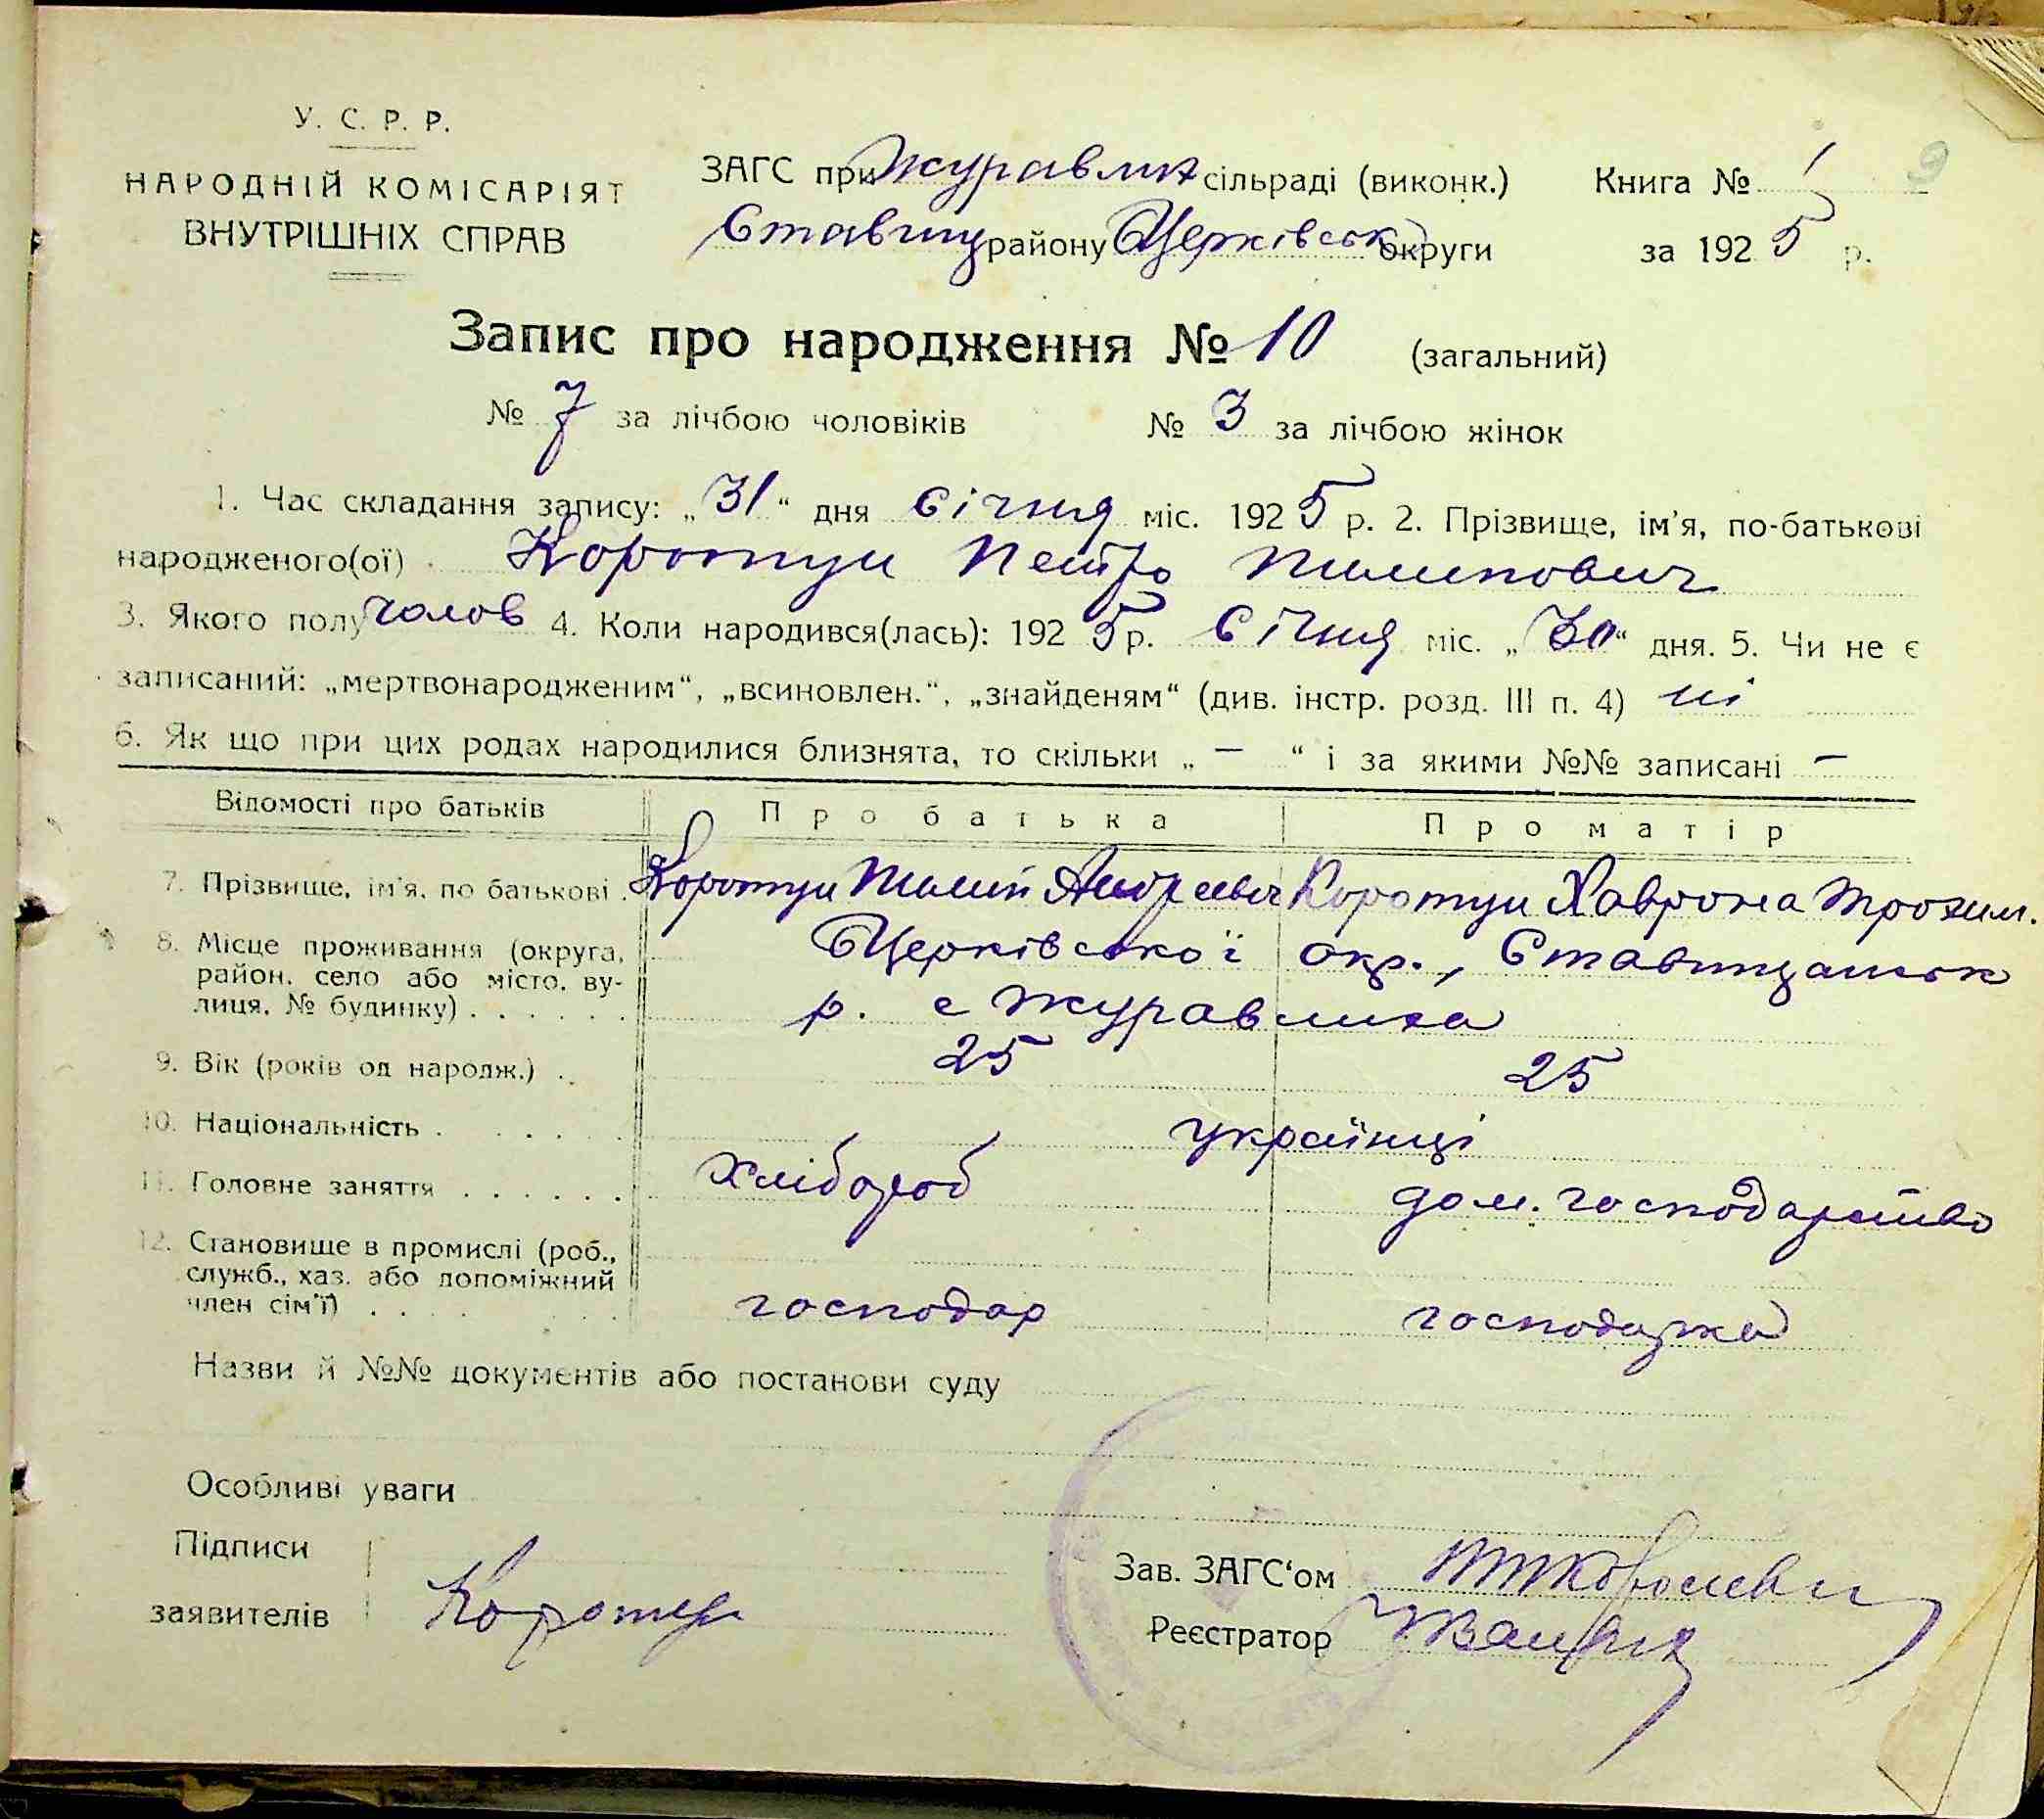 У. С. Р. Р.
НАРОДНІЙ КОМІСАРІЯТ
ВНУТРІШНІХ СПРАВ
ЗАГС при Журавлих сільраді (виконк.) Книга № 1 9
Ставищ району БЦерківськ округи за 1925 р.
Запис про народження № 10 (загальний)
№ 7 за лічбою чоловіків № 3 за лічбою жінок
1. Час складання запису: „31“ дня Січня міс. 1925 р. 2. Прізвище, ім'я, по-батькові
народженого(ої) Коротун Петро Пилипович
3. Якого полу чолов 4. Коли народився(лась): 1925 р. Січня міс. „30“ дня. 5. Чи не є
записаний: „мертвонародженим“, „всиновлен.“, „знайденям“ (див. інстр. розд. III п. 4) ні
6. Як що при цих родах народилися близнята, то скільки „ — “ і за якими №№ записані —
Відомості про батьків Про батька Про матір
7. Прізвище, ім'я, по батькові . Коротун Пилип Андреевич Коротун Хаврона Трохим.
8. Місце проживання (округа, БЦерківської окр., Ставищанськ
район, село або місто, ву-
лиця, № будинку) . . . . . . р. с Журавлиха
9. Вік (років од народж.) . . 25 25
10. Національність . . . . . українці
11. Головне заняття . . . . . . хлібороб дом. господарство
12. Становище в промислі (роб.,
служб., хаз. або допоміжний
член сім'ї) . . . . господар господарка
Назви й №№ документів або постанови суду
Особливі уваги
Підписи
заявителів Коротун
Зав. ЗАГС'ом
Реєстратор